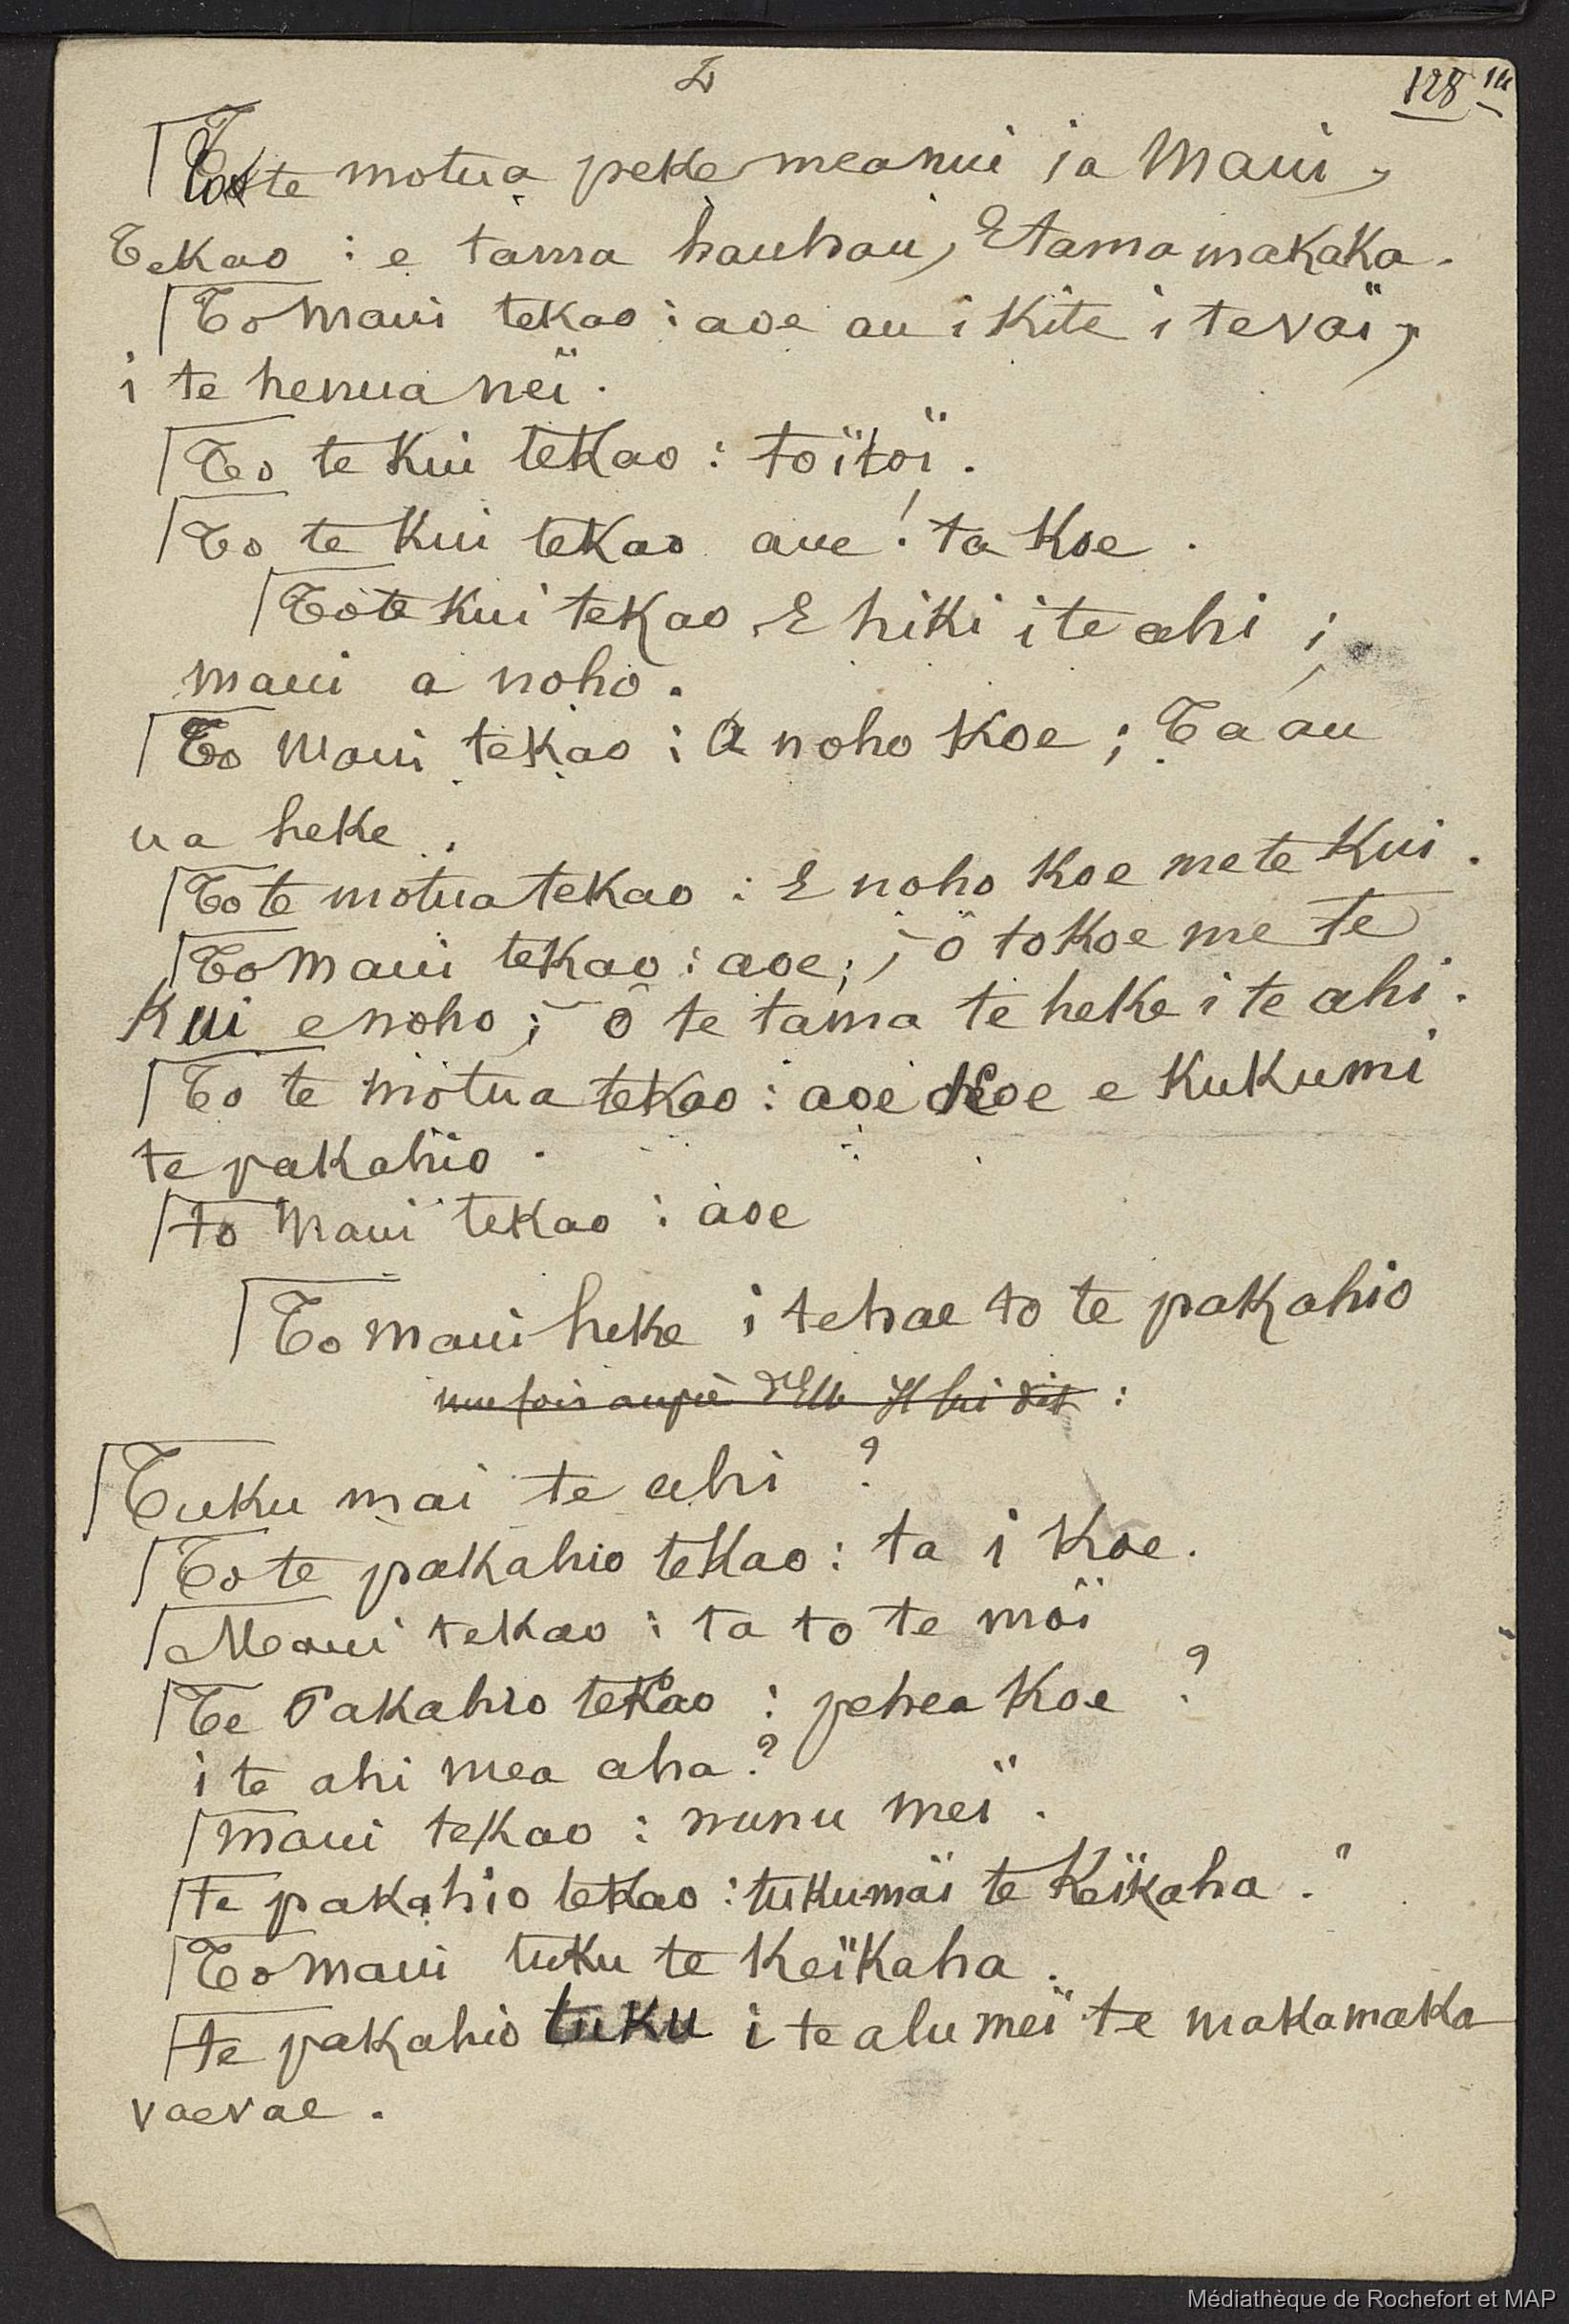 2
128
To te motua peke meanui ia Maui,
Tekao : e tama hauhau, Etama makaka.
To maui tekao : aoe au i kite i te vaï,
i te henua neï.
To te Kui tekao : toïtoï.
To te Kui tekao aue ! ta Koe.
To te Kui tekao E hiki i te ahi ;
maui a noho.
To maui tekao : A noho Koe ; Ta au
ua heke.
To te motua tekao : E noho Koe me te Kui.
To Maui tekao : aoe ; ô to Koe me te
Kui e noho ; ô te tama te heke i te ahi.
To te motua tekao : aoe Koe e Kukumi
te pakahio.
to Maui tekao : aoe
To maui heke i te hae to te pakahio
une fois auprès d'Elle Il lui dit :
Tuku mai te ahi ?
To te pakahio tekao : ta i Koe.
Maui tekao : ta to te moï
Te Pakahio tekao : pehea Koe ?
i te ahi mea aha ?
maui tekao : nunu meï.
te pakahio tekao : tukumaï te Keïkaha."
To maui tuku te Keïkaha.
te pakahio tuku i te ahi meï te makamaka
vaevae.
Médiathèque de Rochefort et MAP